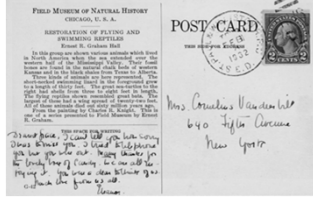 FIELD MUSEUM OF NATURAL HISTORY
CHICAGO, U. S. A.
RESTORATION OF FLYING AND
SWIMMING REPTILES
Ernest R. Graham Hall
In this group are shown various animals which lived
in North America when the sea extended over the
western half of the Mississippi Valley. Their fossil
bones are found in the natural chalk beds of western
Kansas and in the black shales from Texas to Alberta.
Three kinds of animals are here represented. The
short-necked swimming lizard in the foreground grew
to a length of thirty feet. The great sea-turtle to the
right had shells from three to eight feet in length.
The flying reptiles shown resembled great bats. The
largest of these had a wing spread of twenty-two feet.
All of these animals died out sixty million years ago.
From the painting by Charles R. Knight. This is
one of a series presented to Field Museum by Ernest
R. Graham.
THIS SPACE FOR WRITING
I can't tell you how sorry
I was to miss you. I tried to telephone
you but you were out. Many thanks for
the lovely box of Candy. We are all
it. You were a dear to think of us
Much love from us all.
G-42
POST CARD
FEB
1932
2 CENTS 2
Mrs. Cornelius Vanderbilt
640 Fifth Avenue
New York